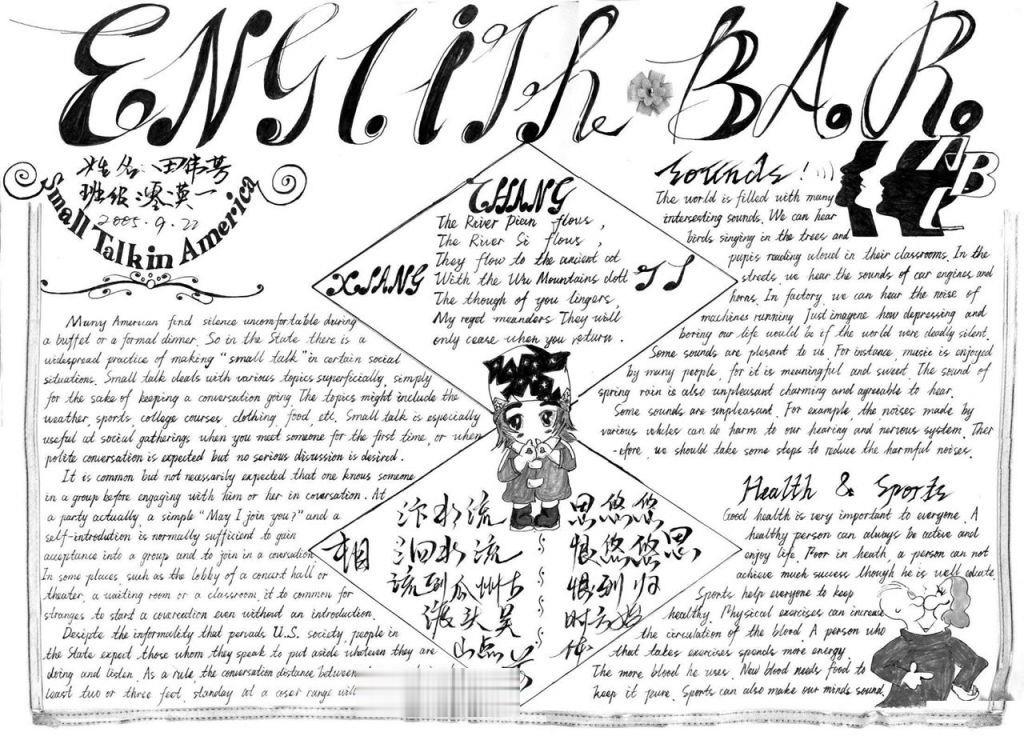 ENGlITh BAR.
姓名:田伟芳
班级:漂英一
2005.9.22
Small Talk in America
Many American find silence uncomfortable during
a buffet or a formal dinner. So in the State there is a
widespread practice of making "small talk" in certain social
situations. Small talk deals with various topics superficially, simply
for the sake of keeping a conversation going. The topics might include the
weather, sports, college courses, clothing, food, etc. Small talk is especially
useful at social gatherings when you meet someone for the first time, or when
polite conversation is expected but no serious discussion is desired.
It is common but not necessarily expected that one knows someone
in a group before engaging with him or her in conversation. At
a party actually, a simple "May I join you?" and a
self-introdution is normally sufficient to gain
acceptance into a group and to join in a conversation
In some places, such as the lobby of a concert hall or
theater, a waiting room or a classroom, it to common for
stranges to start a convercation even without an introduction.
Desipte the informality that pervads U.S. society, people in
the State expect those whom they speak to put aside whatever they are
doing and listen. As a rule the conversation distance between
least two or three feet, standay at a coser range will
CHANG
XIANG
SI
The River Pien flows,
The River Si flows,
They flow to the ancient cot
With the Wu Mountains dott
The though of you lingers,
My reget meanders They will
only cease when you return.
相
思
汴水流
泗水流
该到瓜州古
渡头吴
山点
思悠悠
恨悠悠
恨到归
时方始
休
Sounds!
AB
The world is filled with many
intersesting sounds. We can hear
birds singing in the trees and
pupis reading aloud in their classrooms. In the
streets, we hear the sounds of car engines and
horns. In factory, we can hear the noise of
machines running. Just imagine how depressing and
boring our life would be if the world were deadly silent.
Some sounds are plesant to us. For instance, music is enjoyed
by many people, for it is meaningful and sweet. The sound of
spring rain is also unpleasant charming and agreable to hear.
Some sounds are unpleasant. For example, the noises made by
various vehiles can do harm to our hearing and nervous system. Ther
-efore, we should take some steps to reduce the harmful noises.
Health & Sports
Good health is very important to everyone. A
healthy person can always be active and
enjoy life. Poor in heath, a person can not
achieve much success though he is well educate
Sports help everyone to keep
healthy. Physical exercises can increase
the circulation of the blood. A person who
that takes exercises spends more energy
The more blood he uses. New blood needs food to
keep it pure. Sports can also make our minds sound.